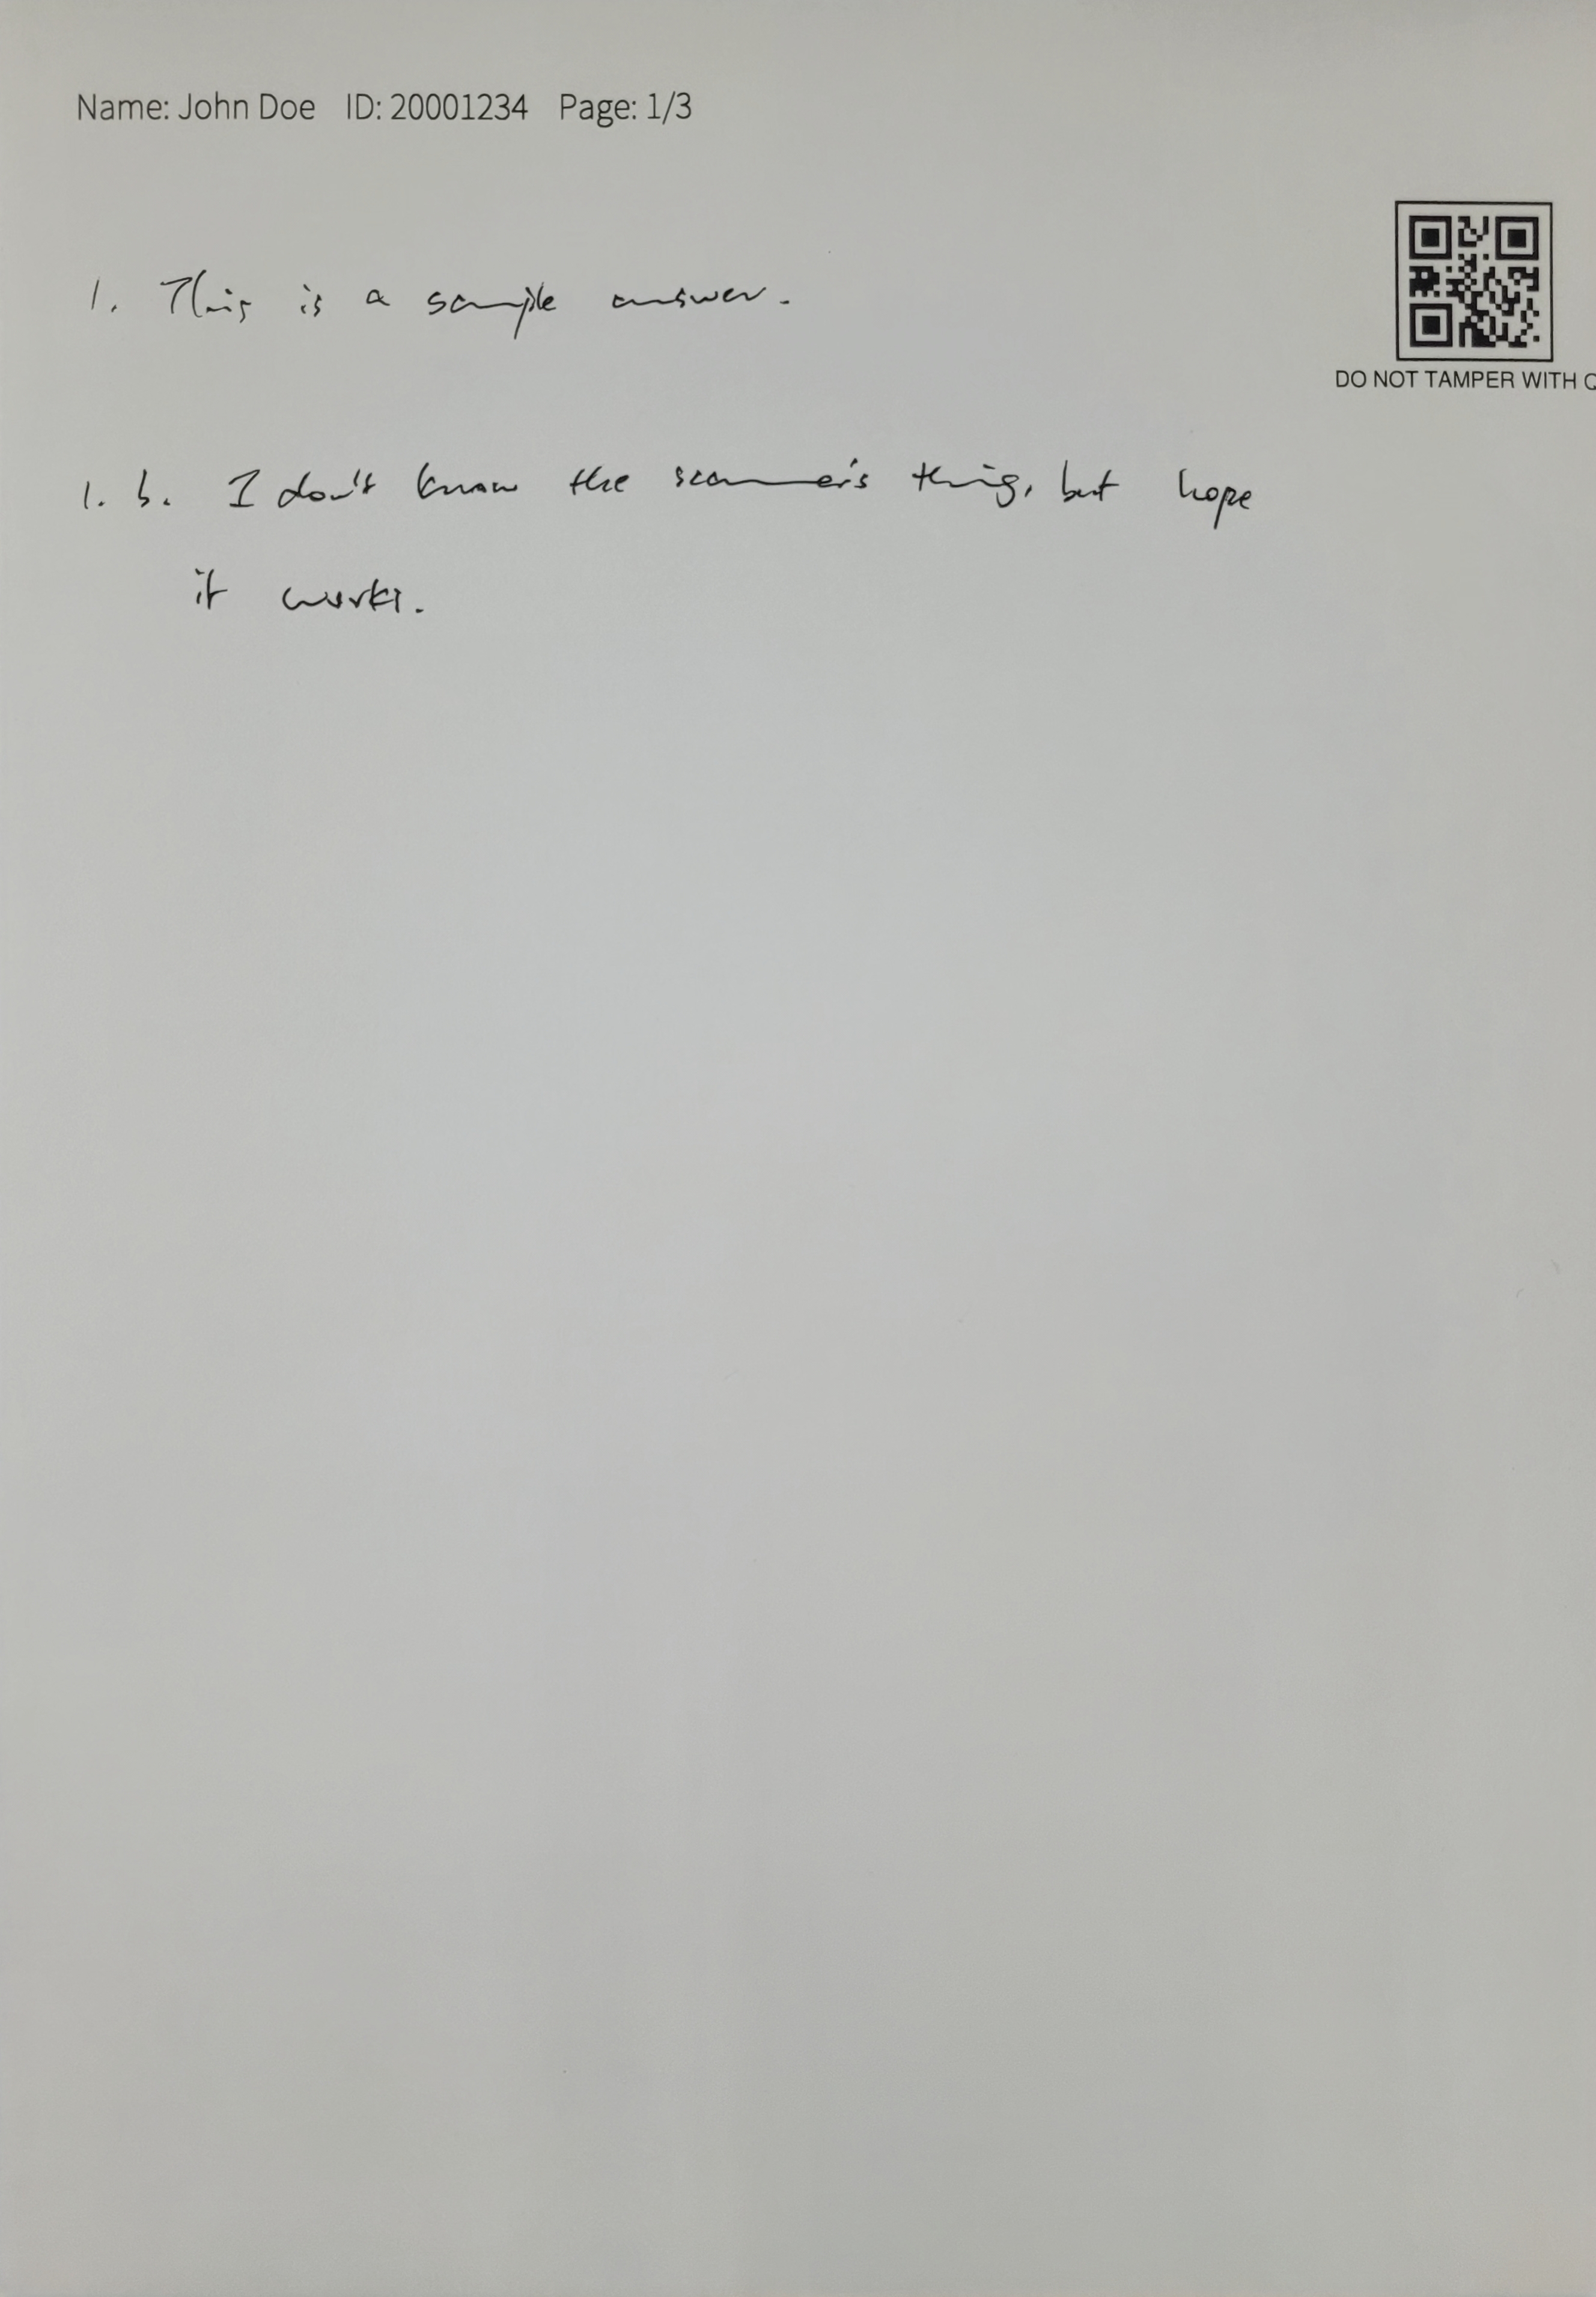 Name: John Doe ID: 20001234 Page: 1/3
DO NOT TAMPER WITH
1. This is a sample answer.
1. b. I don't know the scanner's thing, but hope
it works.